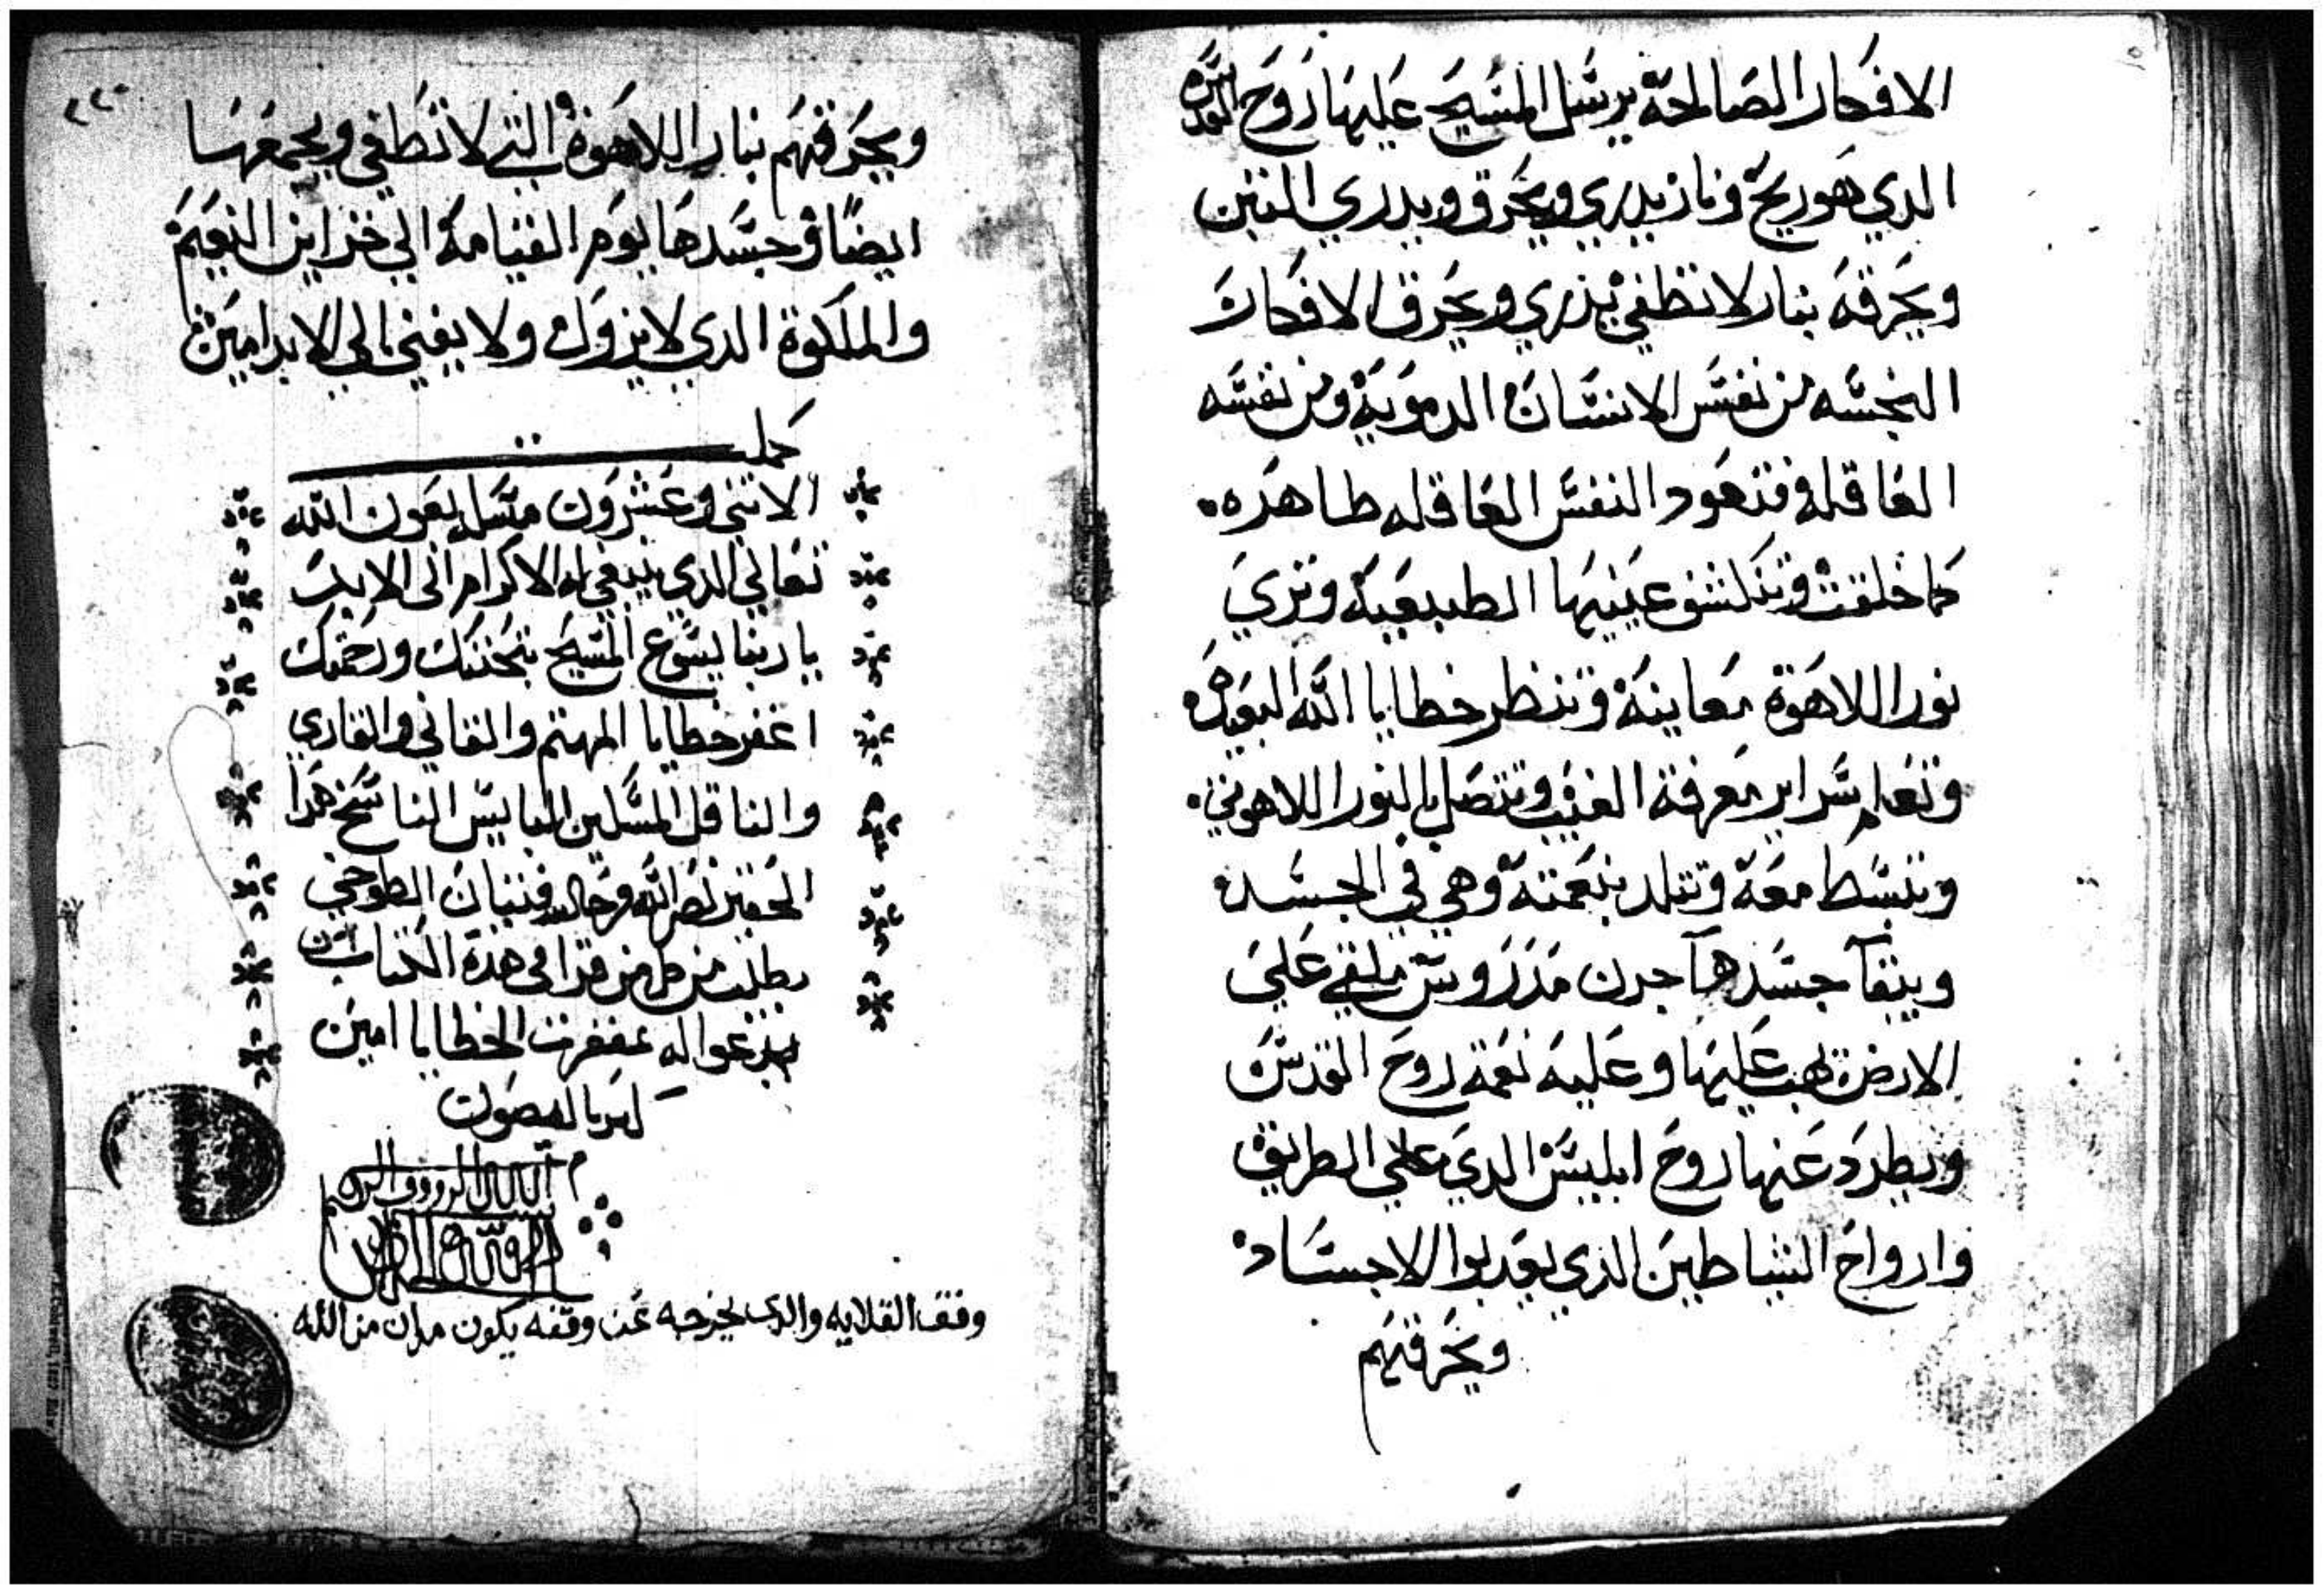 الافكار الصالحة يرسل المسيح عليها روح القدس
الدي هو ريح ونار يدري ويحرق ويدري التبن
ويحرقه بنار لا تطفي يذري ويحرق الافكار
النجسه من نفس الانسان الدموية ومن نفسه
العاقله فتعود النفس العاقله طاهره
كما خلقت وتنكشف عينيها الطبيعية وتري
نور اللاهوة معاينة وتنظر خطايا الله البعيده
وتعلم سراير معرفة الغيب وتتصل بالنور اللاهوتي
وتنبسط معه وتتلد بنعمته وهي في الجسد
ويبقا جسدها جرن مدروس ملقي علي
الارض تهب عليها وعليه نعمة روح القدس
ويطرد عنها روح ابليس الدي علي الطريق
وارواح الشياطين الذي يعدبوا الاجساد
ويحرقهم
٢٢٠
ويحرقهم بنار اللاهوة التي لا تطفي ويجمعها
ايضا وجسدها يوم القيامة الي خزاين النعيم
والملكوة الدي لا يزول ولا يفني الي الابد امين
كملت
الاتني وعشرون ميمر بعون الله
تعالي الدي ينبغي له الاكرام الى الابد
يا ربنا يسوع المسيح بتحننك ورحمتك
اغفر خطايا المهتم والقاني والقاري
والناقل المسكين البايس الناسخ هدا
الحقير نصر الله فتيان الطوخي
يطلب من كل من قرا في هدة الكتاب ان
يدعوا له بمغفرت الخطايا امين
وقف القلايه والدي يخرجه عن وقفه يكون من الله